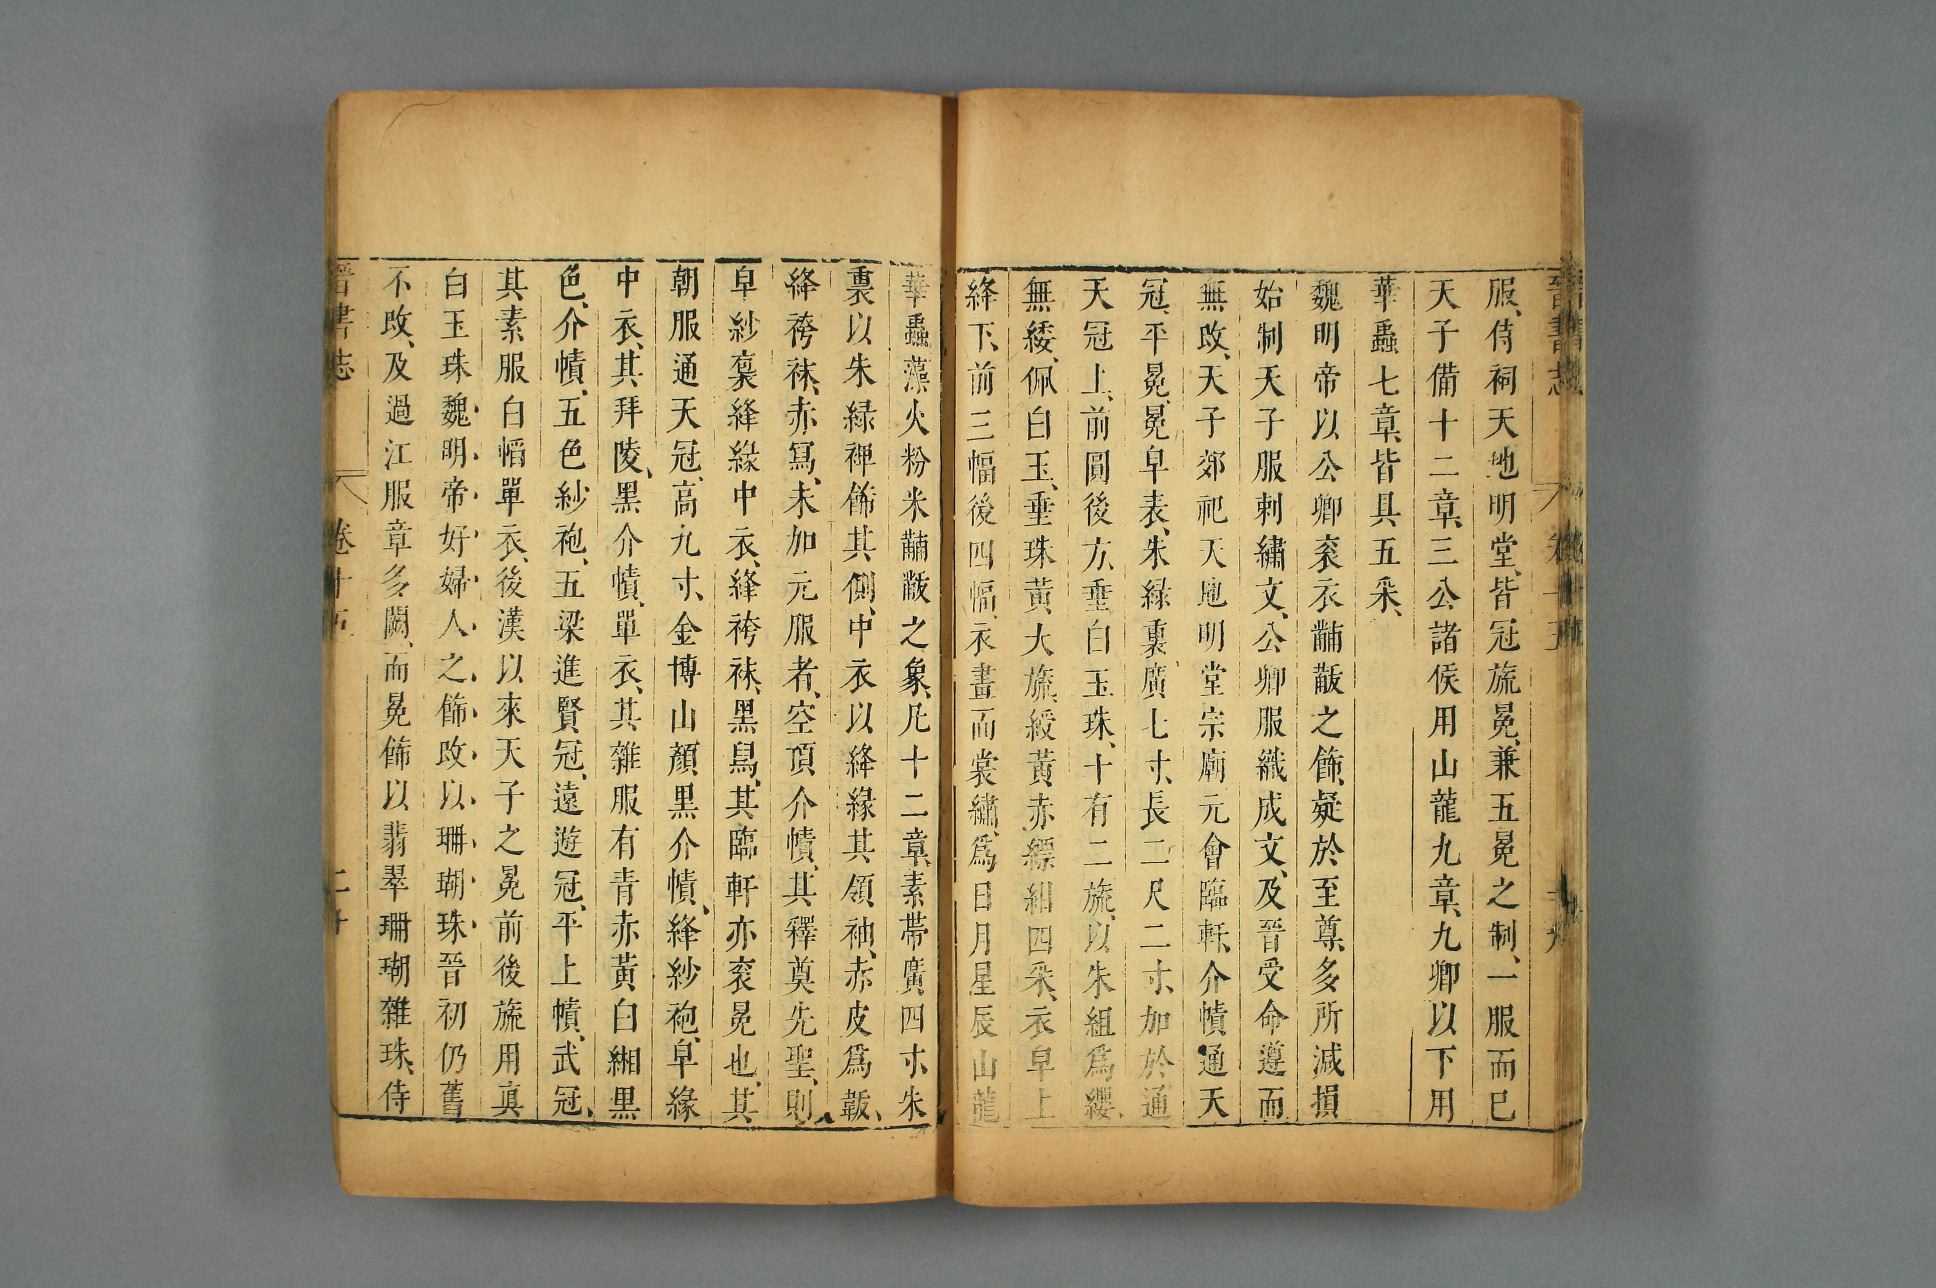 服、侍祠天地明堂、皆冠旒冕、兼五冕之制、一服而已
天子備十二章、三公諸侯用山龍九章、九卿以下用
華蟲七章、皆具五采、
魏明帝以公卿衮衣黼黻之飾、疑於至尊、多所減損
始制天子服刺繡文、公卿服織成文、及晉受命遵而
無改、天子郊祀天地明堂宗廟元會臨軒、介幘通天
冠、平冕、冕皁表、朱緑裏廣七寸、長二尺二寸、加於通
天冠上、前圓後方、垂白玉珠、十有二旒、以朱組爲纓、
無緌、佩白玉、垂珠黃大旒、綬黃赤縹紺四采、衣皁上
絳下、前三幅後四幅、衣畫而裳繡、爲日月星辰山龍
華蟲藻火粉米黼黻之象、凡十二章、素帶廣四寸、朱
裏以朱緑裨飾其側、中衣以絳緣其領袖、赤皮爲韍、
絳袴袜、赤舄、未加元服者、空頂介幘、其釋奠先聖、則
皁紗裏絳緣中衣、絳袴袜、黑舄、其臨軒亦衮冕也、其
朝服通天冠、高九寸、金博山顏黑介幘、絳紗袍、皁緣
中衣、其拜陵、黑介幘、單衣、其雜服有青赤黃白緗黑
色、介幘、五色紗袍、五梁進賢冠、遠遊冠、平上幘、武冠、
其素服白㡊單衣、後漢以來天子之冕前後旒用真
白玉珠魏明帝好婦人之飾改以珊瑚珠晉初仍舊
不改、及過江服章多闕、而冕飾以翡翠珊瑚雜珠、侍
晉書志 卷十五 二十